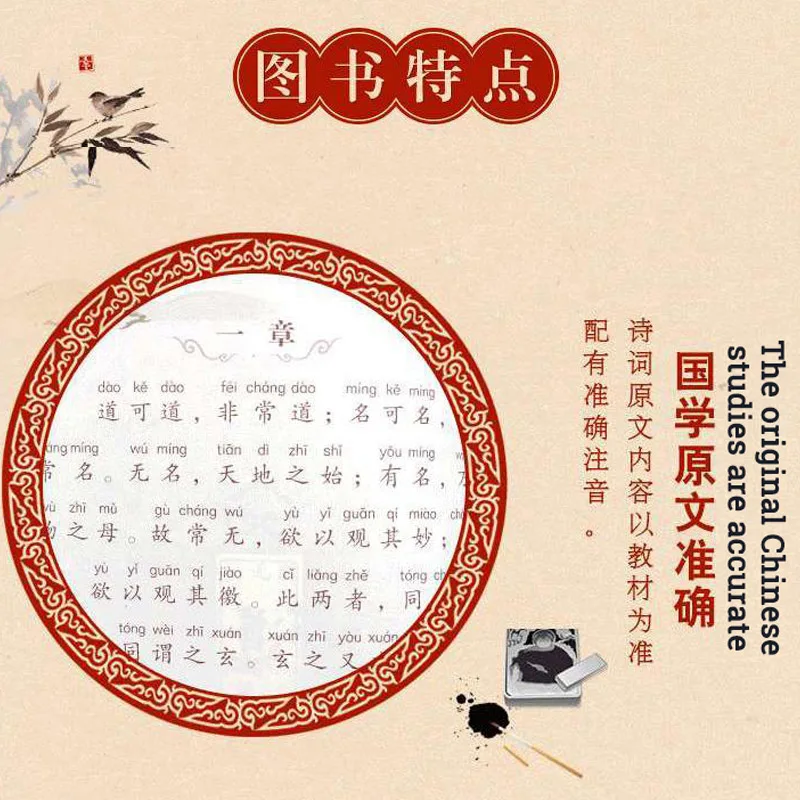 图书特点
一章
dào kě dào fēi cháng dào míng kě míng
道可道，非常道；名可名，
míng wú míng tiān dì zhī shǐ yǒu míng
常名。无名，天地之始；有名，
zhī mǔ gù cháng wú yù yǐ guān qí miào
物之母。故常无，欲以观其妙；
yù yǐ guān qí jiào cǐ liǎng zhě tóng
欲以观其徼。此两者，同
tóng wèi zhī xuán xuán zhī yòu xuán
同谓之玄。玄之又
The original Chinese
studies are accurate
国学原文准确
诗词原文内容以教材为准
配有准确注音。